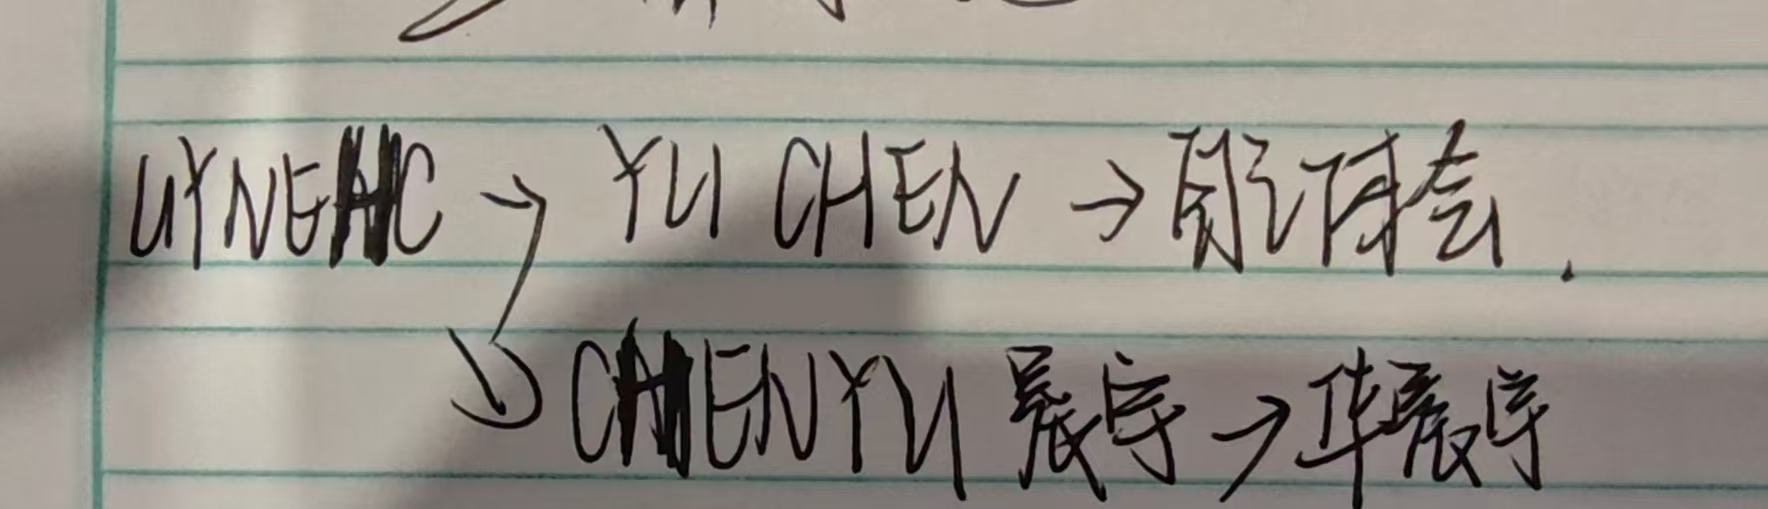 UYNEHC → YU CHEN →
CHENYU 晨宇 → 华晨宇